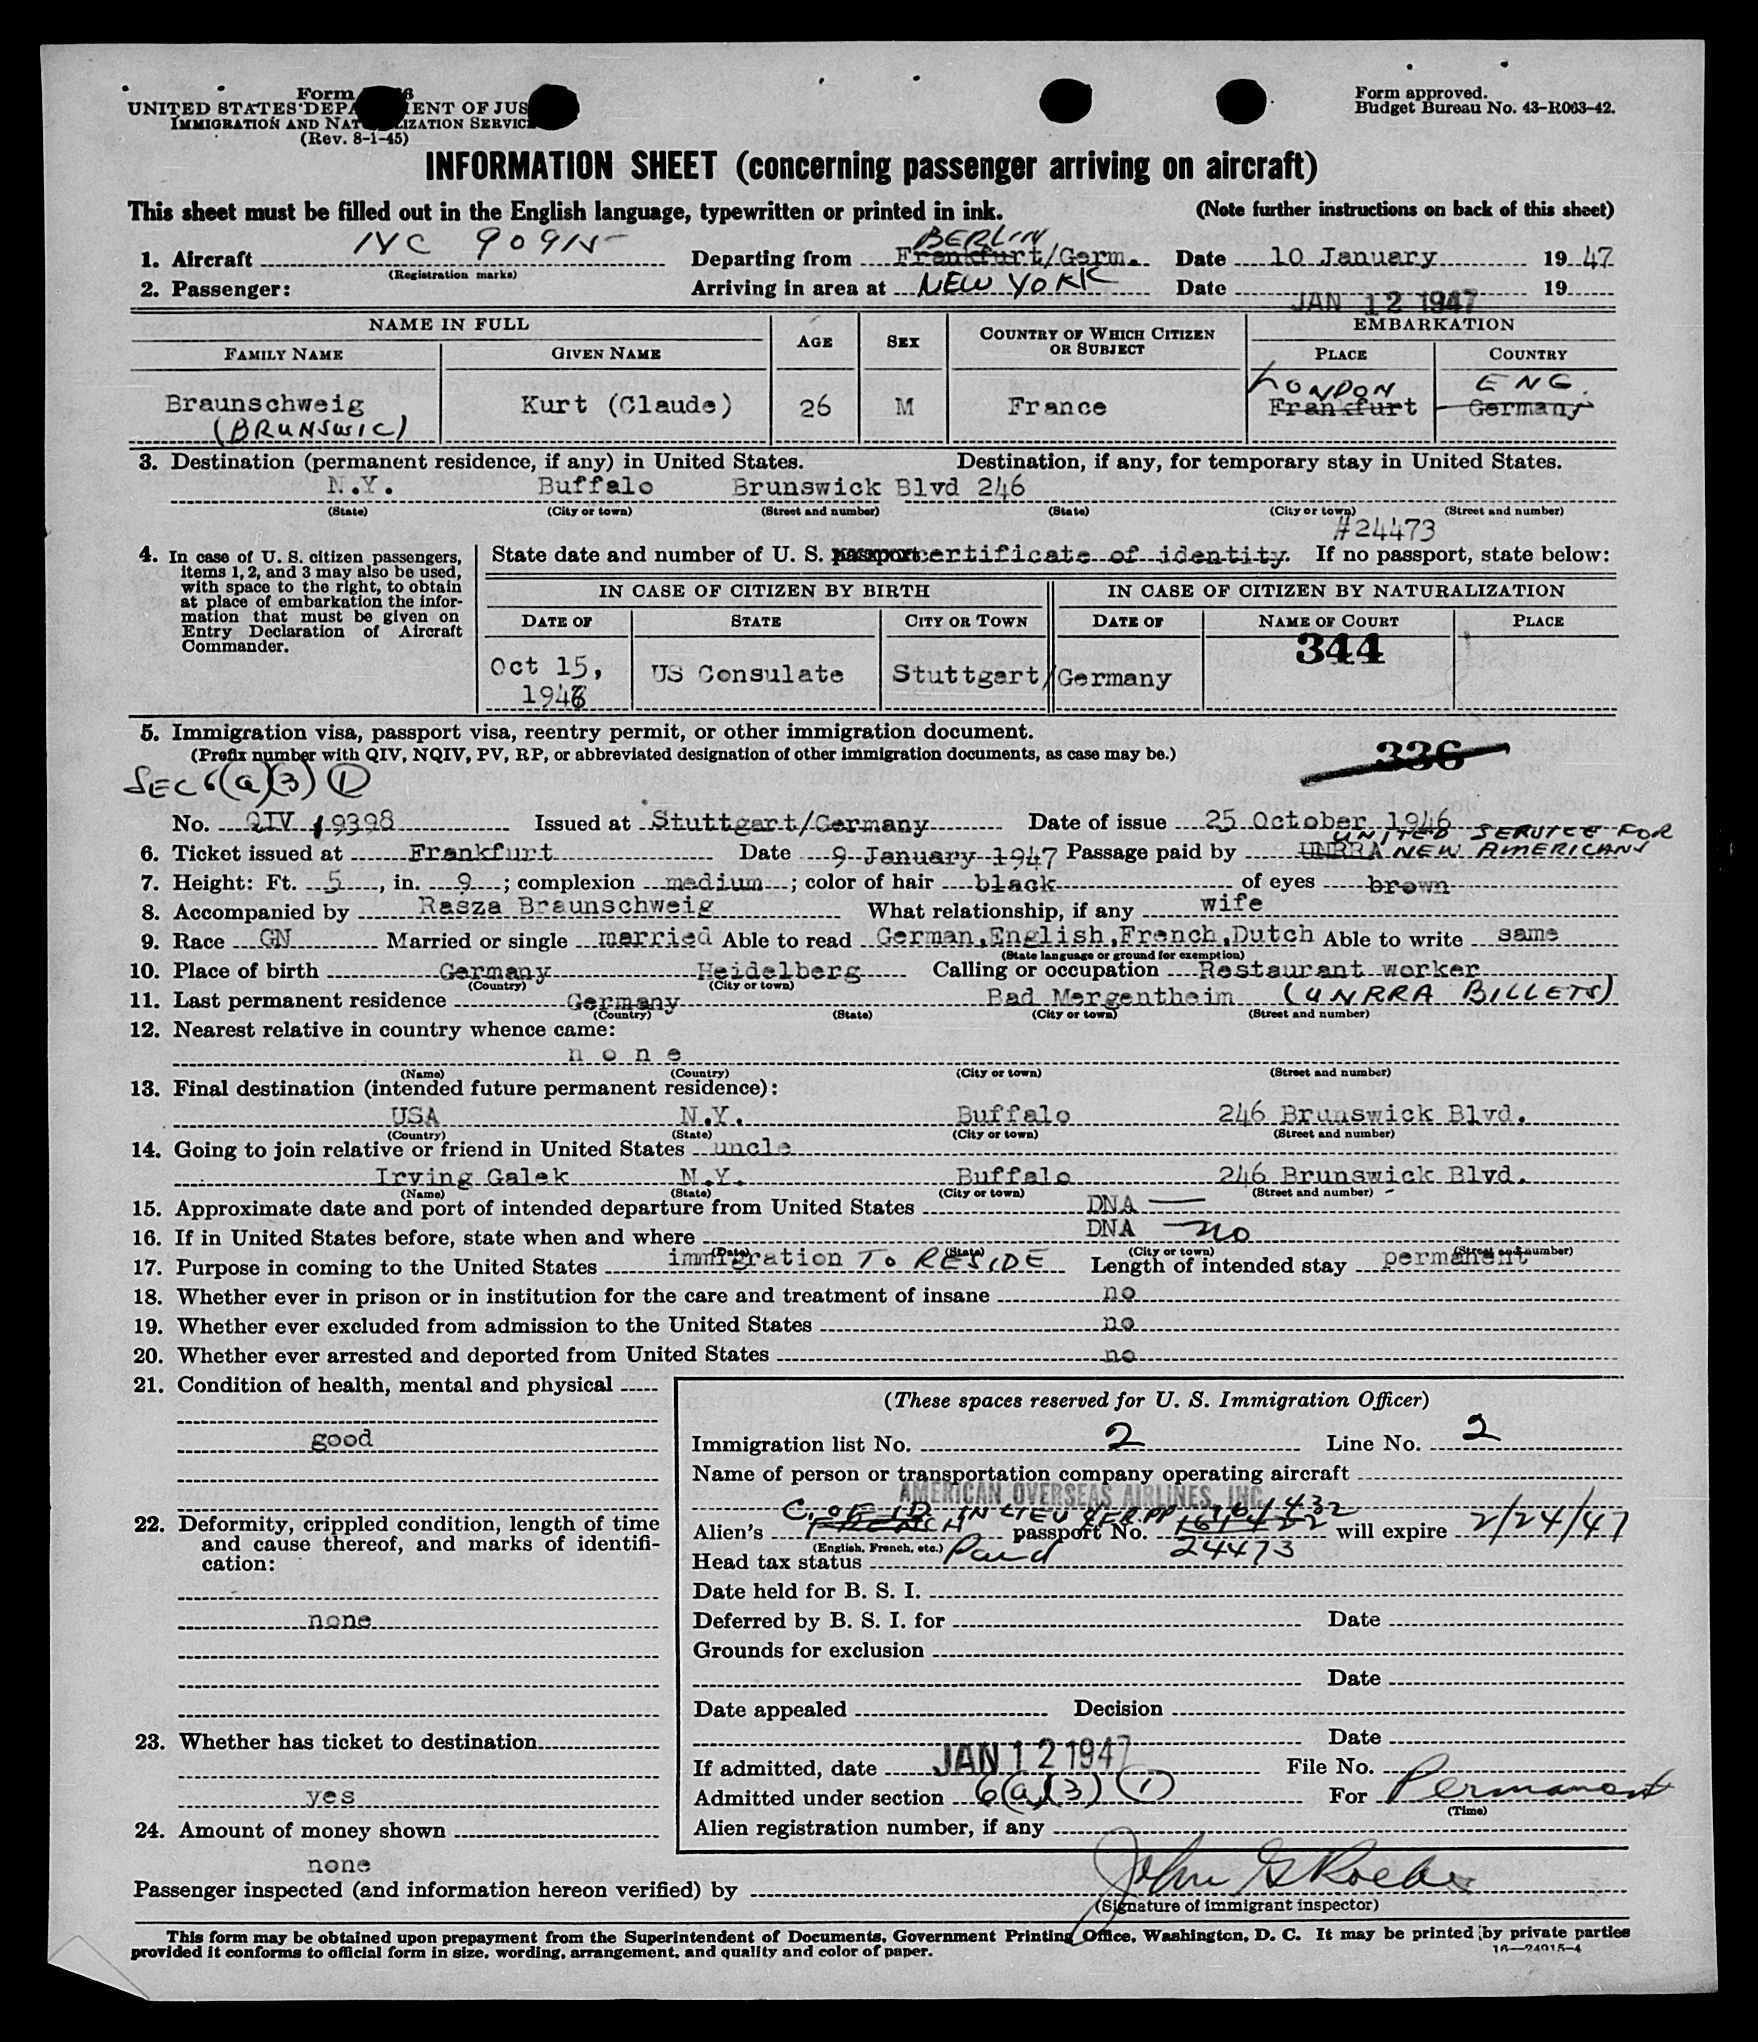 Form
UNITED STATES DEPARTMENT OF JUS
IMMIGRATION AND NATURALIZATION SERVICE
(Rev. 8-1-45)
Form approved.
Budget Bureau No. 43-R063-42.
INFORMATION SHEET (concerning passenger arriving on aircraft)
This sheet must be filled out in the English language, typewritten or printed in ink. (Note further instructions on back of this sheet)
BERLIN
1. Aircraft NC 90915 Departing from Frankfurt/Germ. Date 10 January 1947
(Registration marks)
2. Passenger: Arriving in area at NEW YORK Date JAN 12 1947 19
NAME IN FULL AGE SEX COUNTRY OF WHICH CITIZEN OR SUBJECT EMBARKATION
FAMILY NAME GIVEN NAME PLACE COUNTRY
LONDON ENG.
Braunschweig Kurt (Claude) 26 M France Frankfurt Germany
(BRUNSWIC)
3. Destination (permanent residence, if any) in United States. Destination, if any, for temporary stay in United States.
N.Y. Buffalo Brunswick Blvd 246
(State) (City or town) (Street and number) (State) (City or town) (Street and number)
#24473
4. In case of U. S. citizen passengers, items 1, 2, and 3 may also be used, with space to the right, to obtain at place of embarkation the information that must be given on Entry Declaration of Aircraft Commander.
State date and number of U. S. passport certificate of identity. If no passport, state below:
IN CASE OF CITIZEN BY BIRTH IN CASE OF CITIZEN BY NATURALIZATION
DATE OF STATE CITY OR TOWN DATE OF NAME OF COURT PLACE
344
Oct 15, 1946 US Consulate Stuttgart/Germany
5. Immigration visa, passport visa, reentry permit, or other immigration document.
(Prefix number with QIV, NQIV, PV, RP, or abbreviated designation of other immigration documents, as case may be.)
336
SEC 6(a)(3) (1)
No. QIV 19398 Issued at Stuttgart/Germany Date of issue 25 October 1946
UNITED SERVICE FOR
6. Ticket issued at Frankfurt Date 9 January 1947 Passage paid by UNRRA NEW AMERICANS
7. Height: Ft. 5, in. 9; complexion medium; color of hair black of eyes brown
8. Accompanied by Rasza Braunschweig What relationship, if any wife
9. Race GN Married or single married Able to read German,English,French,Dutch Able to write same
(State language or ground for exemption)
10. Place of birth Germany Heidelberg Calling or occupation Restaurant worker
(Country) (City or town)
11. Last permanent residence Germany Bad Mergentheim (UNRRA BILLETS)
(Country) (State) (City or town) (Street and number)
12. Nearest relative in country whence came:
none
(Name) (Country) (City or town) (Street and number)
13. Final destination (intended future permanent residence):
USA N.Y. Buffalo 246 Brunswick Blvd.
(Country) (State) (City or town) (Street and number)
14. Going to join relative or friend in United States uncle
Irving Galek N.Y. Buffalo 246 Brunswick Blvd.
(Name) (State) (City or town) (Street and number)
15. Approximate date and port of intended departure from United States DNA
16. If in United States before, state when and where DNA no
(Date) (State) (City or town) (Street and number)
17. Purpose in coming to the United States immigration TO RESIDE Length of intended stay permanent
18. Whether ever in prison or in institution for the care and treatment of insane no
19. Whether ever excluded from admission to the United States no
20. Whether ever arrested and deported from United States no
21. Condition of health, mental and physical
good
22. Deformity, crippled condition, length of time and cause thereof, and marks of identification:
none
23. Whether has ticket to destination
yes
24. Amount of money shown
none
(These spaces reserved for U. S. Immigration Officer)
Immigration list No. 2 Line No. 2
Name of person or transportation company operating aircraft
AMERICAN OVERSEAS AIRLINES, INC.
C. OF ID. IN LIEU
Alien's FRENCH passport No. 24473 will expire 2/24/47
(English, French, etc.)
Head tax status Paid
Date held for B. S. I.
Deferred by B. S. I. for Date
Grounds for exclusion
Date
Date appealed Decision
Date
If admitted, date JAN 12 1947 File No.
Admitted under section 6(a)(3) (1) For Permanent
(Time)
Alien registration number, if any
Passenger inspected (and information hereon verified) by John G
(Signature of immigrant inspector)
This form may be obtained upon prepayment from the Superintendent of Documents, Government Printing Office, Washington, D. C. It may be printed by private parties
provided it conforms to official form in size, wording, arrangement, and quality and color of paper.
16—24915-4